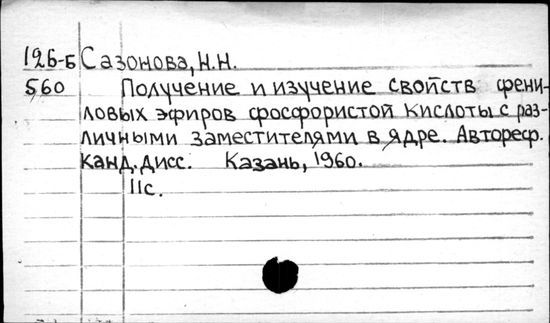 126-Б Сазонова, Н.Н.
560 Получение и изучение свойств фени-
ловых эфиров фосфористой кислоты с раз-
личными заместителями в ядре. Автореф.
канд. дисс. Казань, 1960.
11с.